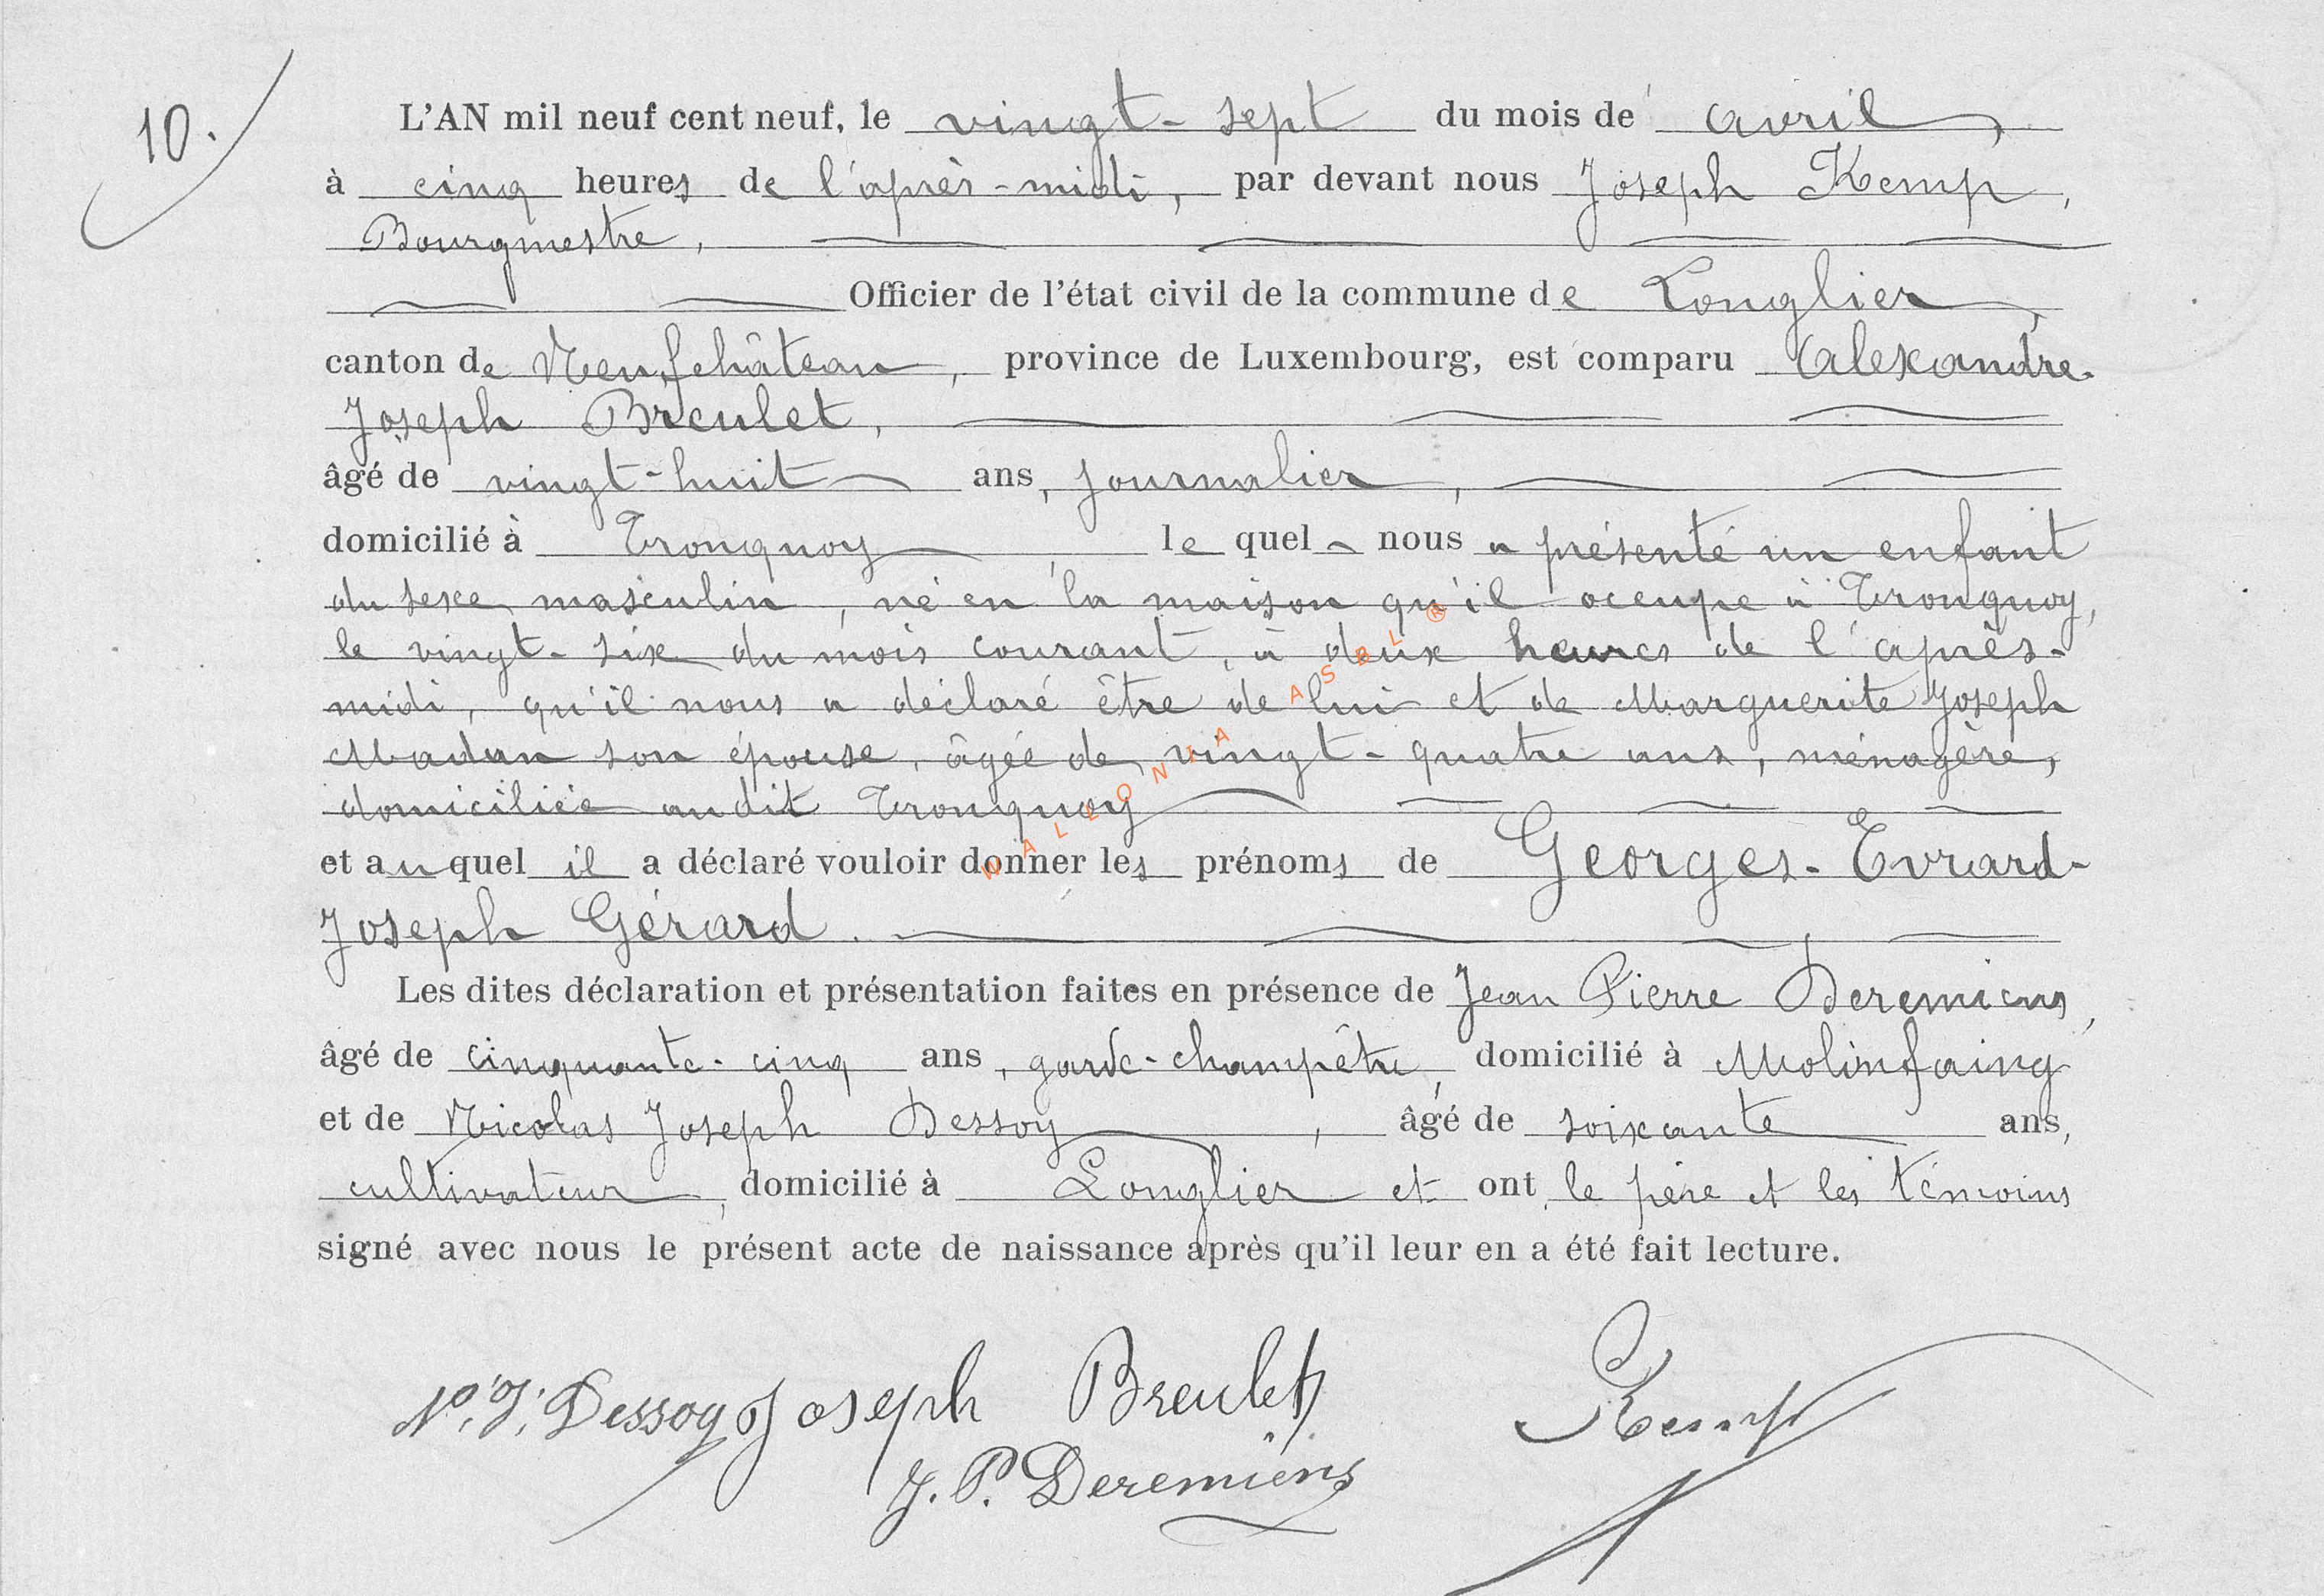 10.
L'AN mil neuf cent neuf, le vingt-sept du mois de avril,
à cinq heures de l'après-midi, par devant nous Joseph Kemp,
Bourgmestre,
Officier de l'état civil de la commune de Longlier,
canton de Neufchâteau, province de Luxembourg, est comparu Alexandre
Joseph Breulet,
âgé de vingt-huit ans, journalier,
domicilié à Tronquoy, le quel nous a présenté un enfant
du sexe masculin, né en la maison qu'il occupe à Tronquoy,
le vingt-six du mois courant, à deux heures de l'après-
midi, qu'il nous a déclaré être de lui et de Marguerite Joseph
Madan son épouse, âgée de vingt-quatre ans, ménagère,
domiciliée au dit Tronquoy
et au quel il a déclaré vouloir donner les prénoms de Georges-Evrard-
Joseph Gérard.
Les dites déclaration et présentation faites en présence de Jean Pierre Deremiens,
âgé de cinquante-cinq ans, garde-champêtre, domicilié à Molinfaing
et de Nicolas Joseph Dessoy, âgé de soixante ans,
cultivateur, domicilié à Longlier et ont, le père et les témoins
signé avec nous le présent acte de naissance après qu'il leur en a été fait lecture.
N. J. Dessoy Joseph Breulet Kemp
J. P. Deremiens
WALLONIA ASBL ®